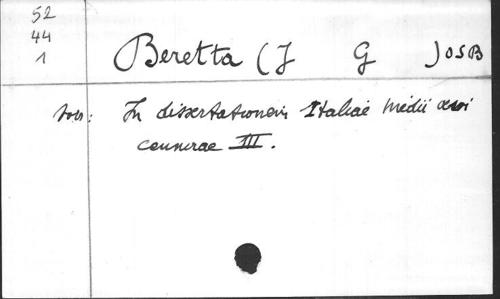 52
44
1
Beretta (J G JOSB
In dissertationem Italiae medii aevi
censurae III.